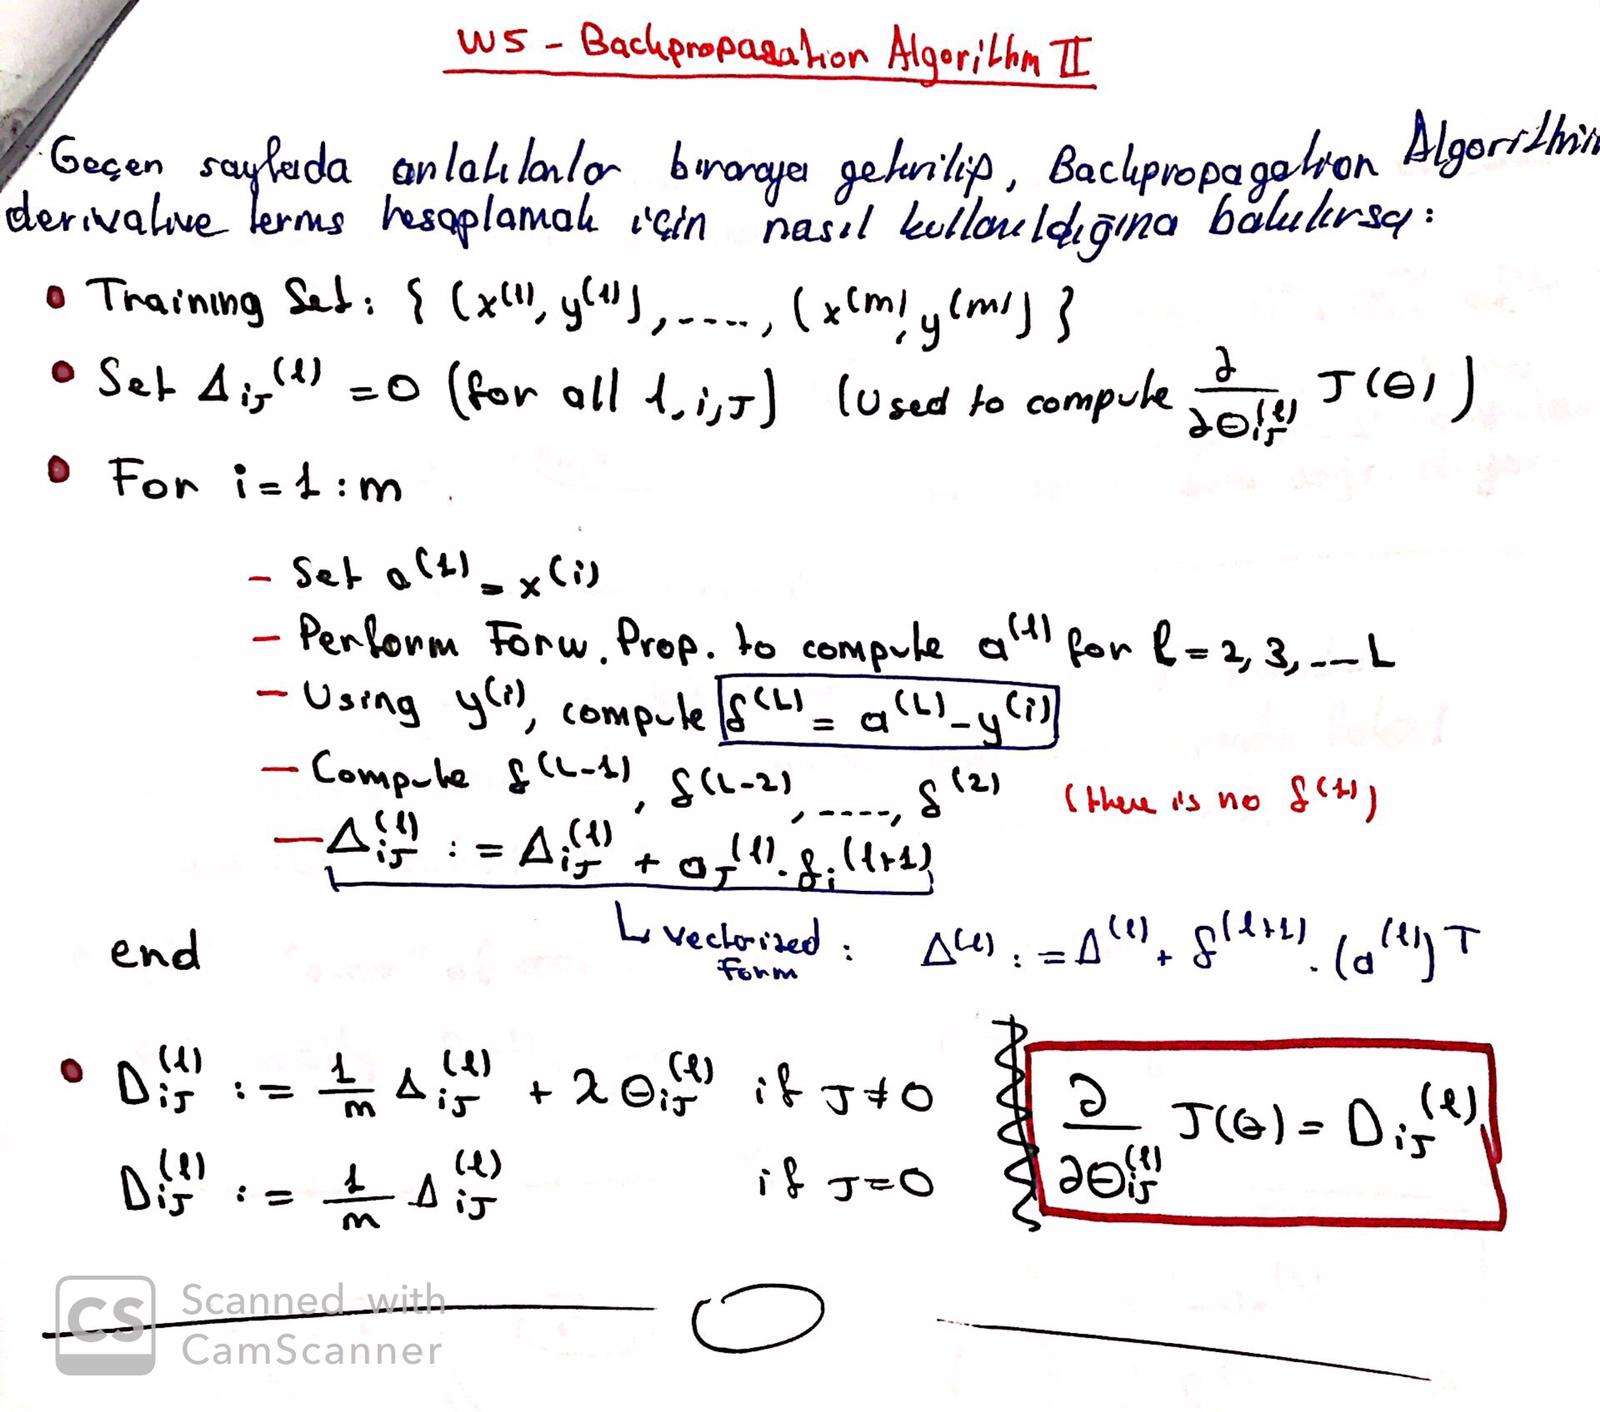 W5 - Backpropagation Algorithm II
Geçen sayfada anlatılanlar biraraya getirilip, Backpropagation Algorithm
derivative terms hesaplamak için nasıl kullanıldığına bakılırsa:
• Training Set: { (x^(1), y^(1)), ...., (x^(m), y^(m)) }
• Set Δij^(l) = 0 (for all l, i, j) (used to compute ∂/∂Θij^(l) J(Θ))
• For i = 1 : m
- Set a^(1) = x^(i)
- Perform Forw. Prop. to compute a^(l) for l = 2, 3, ... L
- Using y^(i), compute δ^(L) = a^(L) - y^(i)
- Compute δ^(L-1), δ^(L-2), ...., δ^(2) (there is no δ^(1))
- Δij^(l) := Δij^(l) + aj^(l) . δi^(l+1)
↳ vectorized form : Δ^(l) := Δ^(l) + δ^(l+1) . (a^(l))^T
end
• Dij^(l) := 1/m Δij^(l) + λ Θij^(l) if j ≠ 0
Dij^(l) := 1/m Δij^(l) if j = 0
∂/∂Θij^(l) J(Θ) = Dij^(l)
CS Scanned with
CamScanner